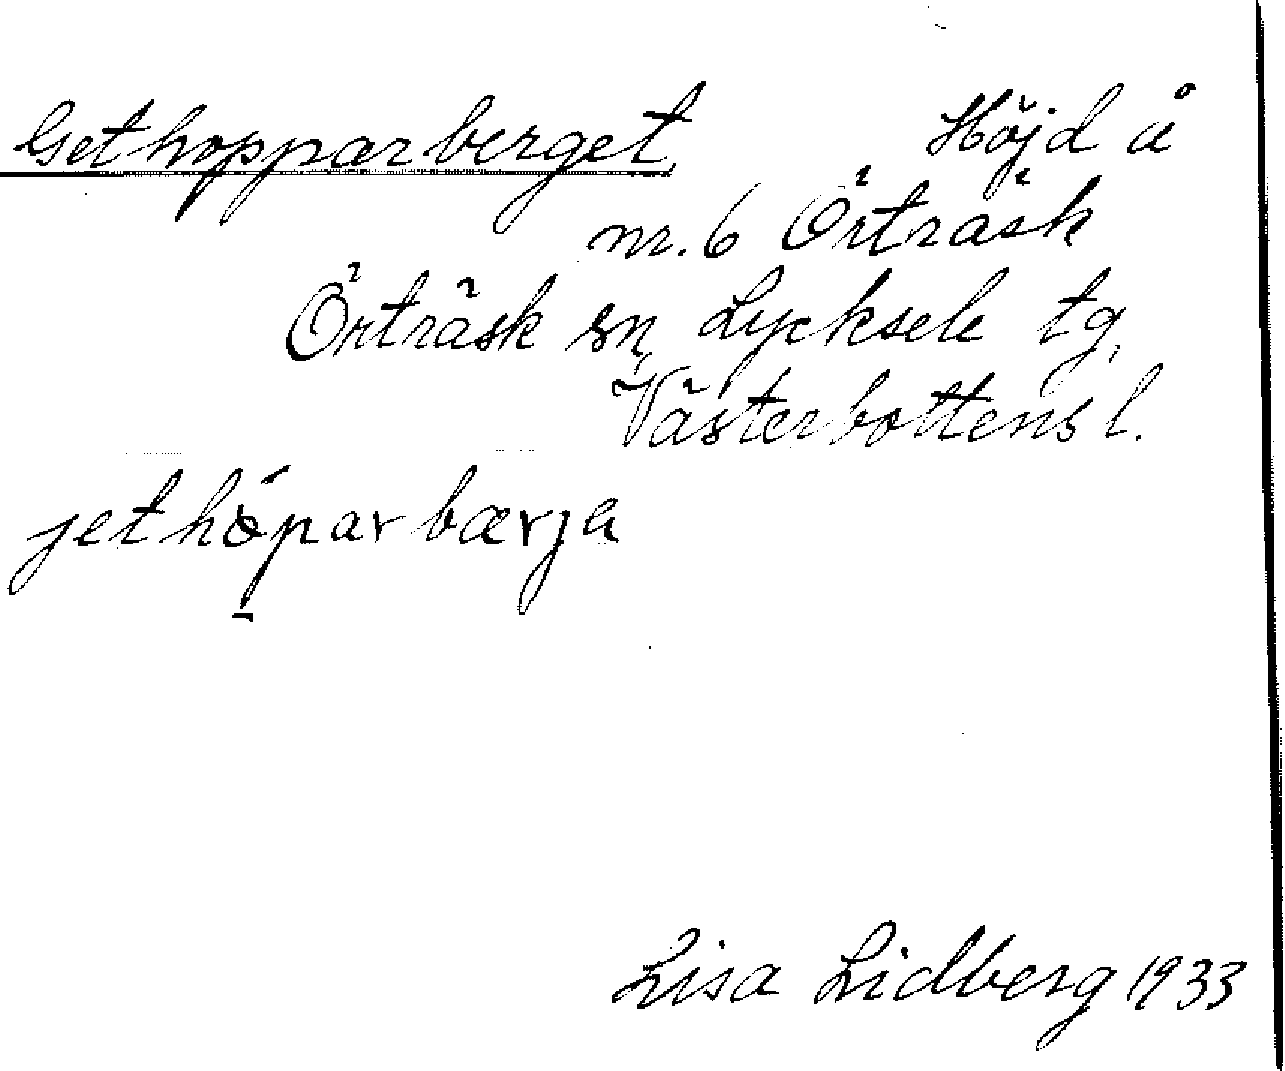 Gethopparberget Höjd å
nr. 6 Örträsk
Örträsk sn, Lycksele tg,
Västerbottens l.
jethópar bærja
Lisa Lidberg 1933